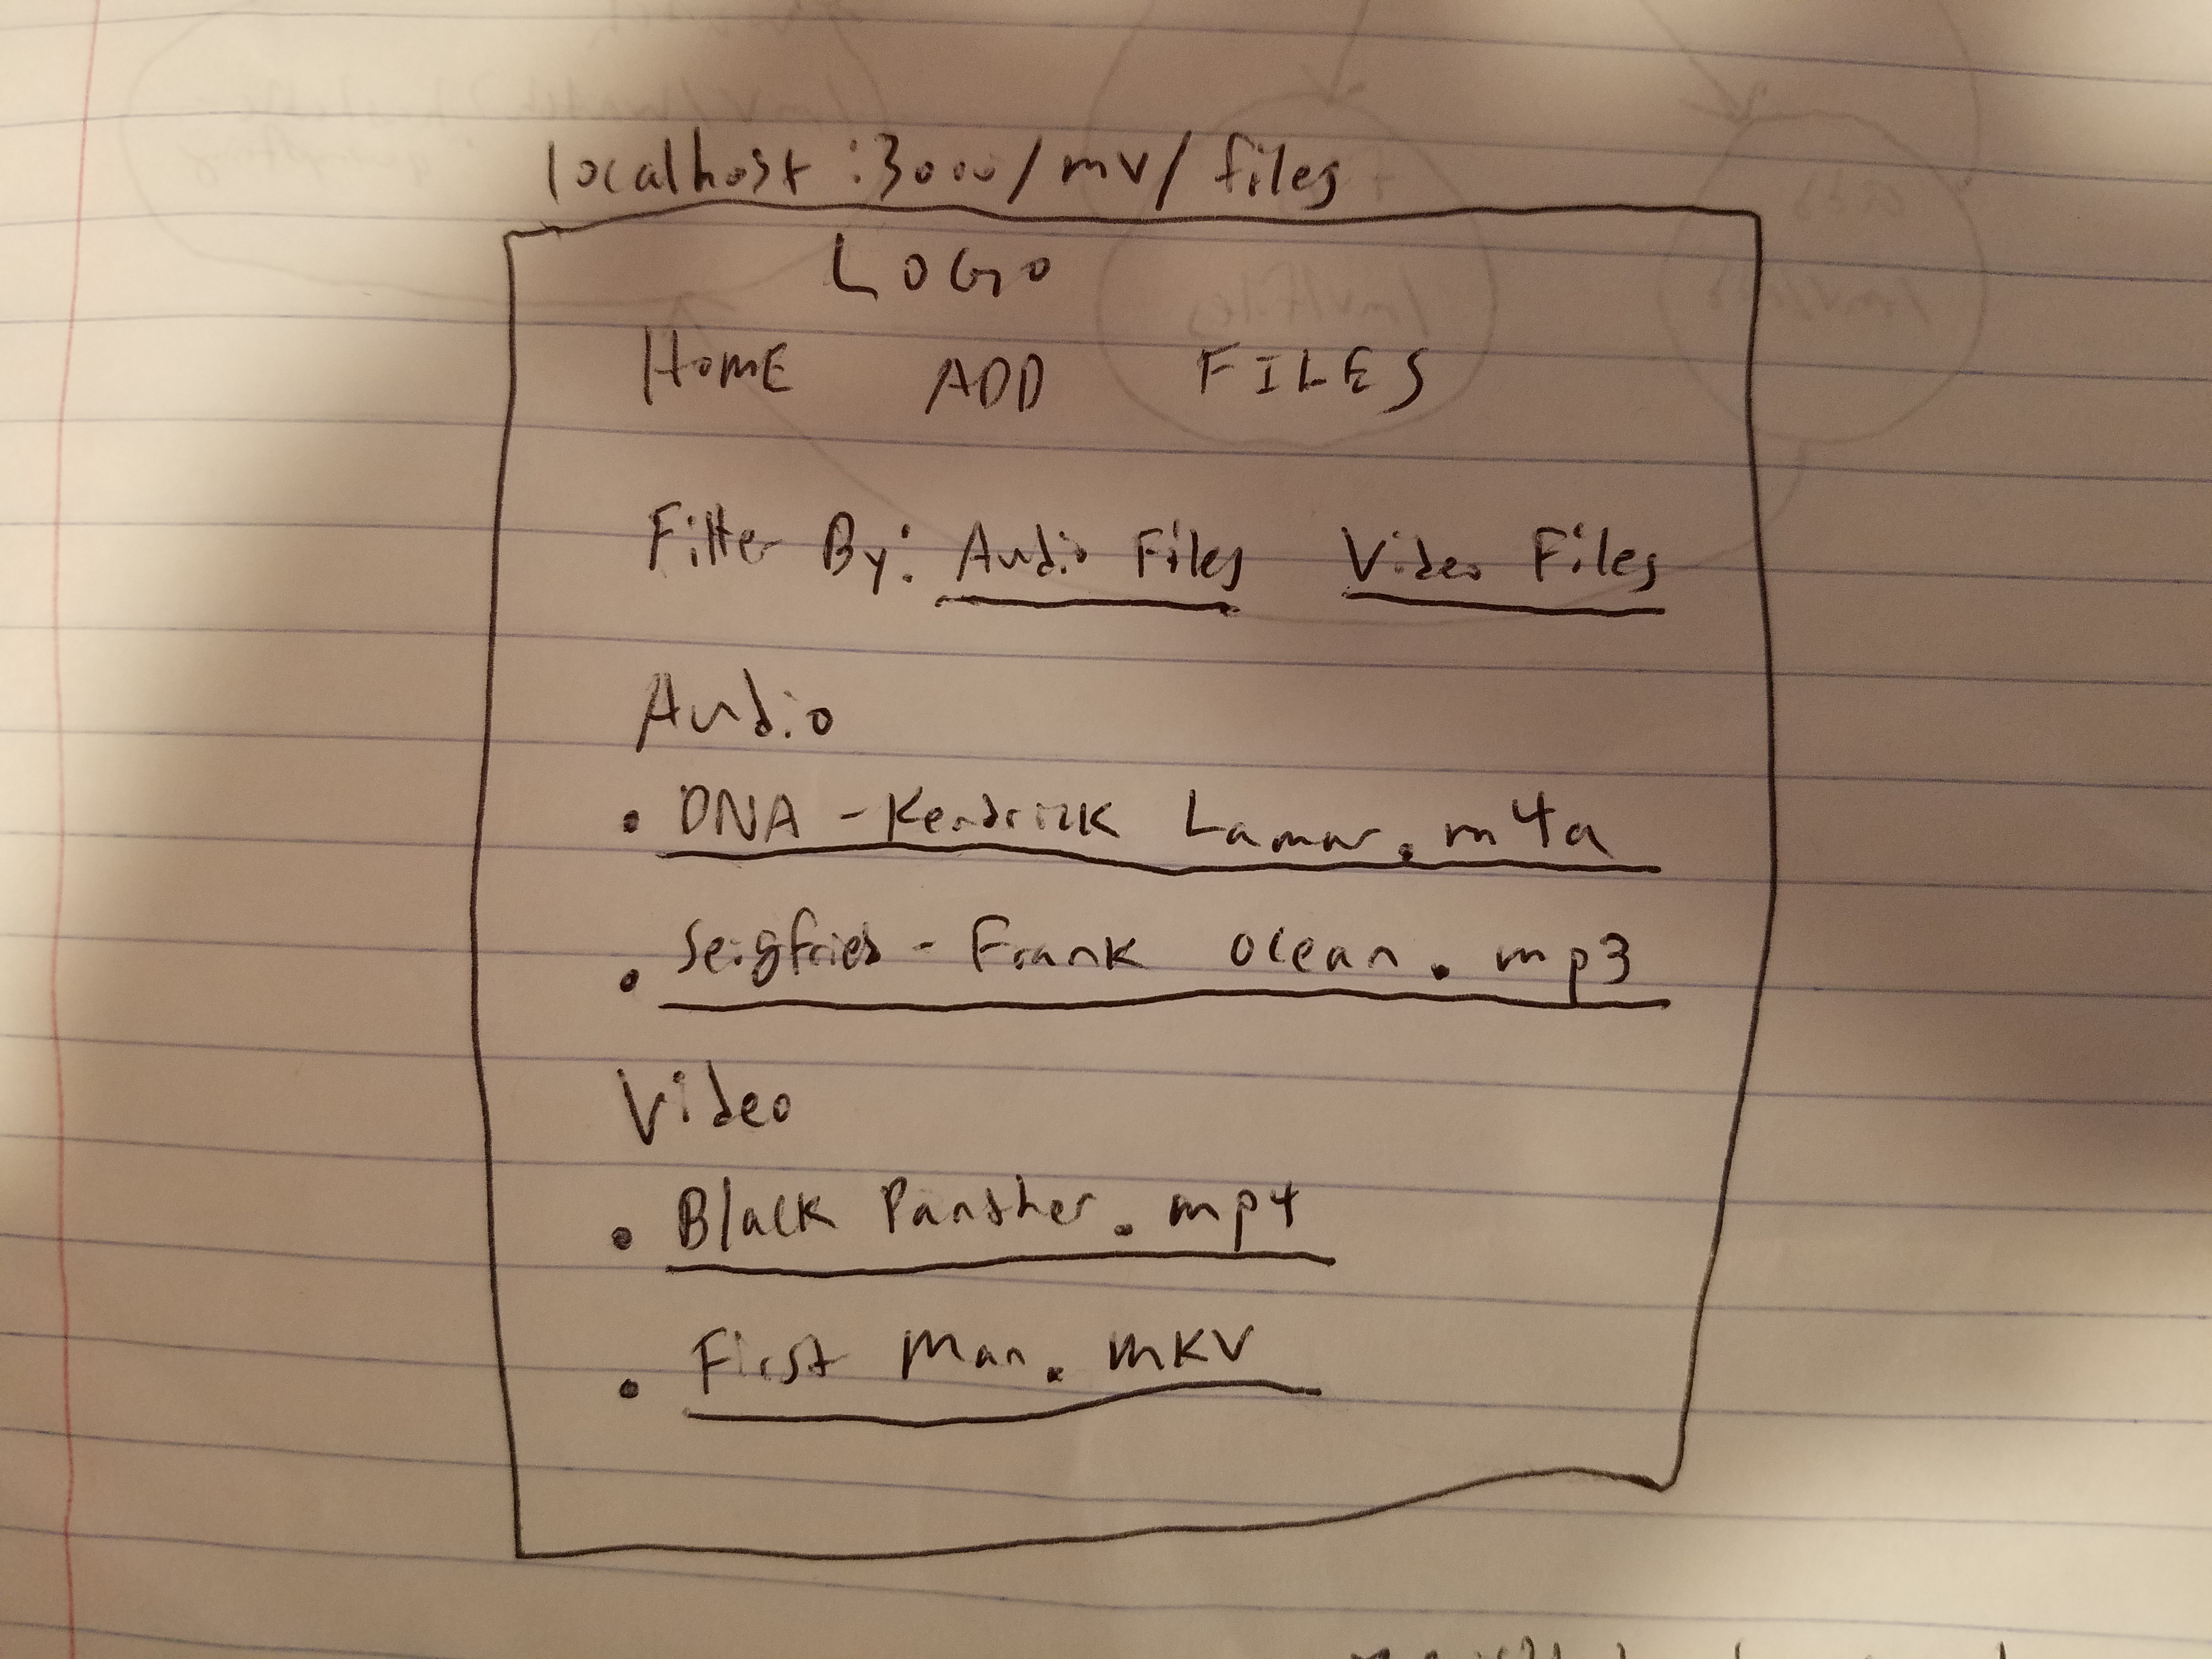 localhost:3000/mv/files
LOGO
HOME ADD FILES
Filter By: Audio Files Video Files
Audio
• DNA - Kendrick Lamar.m4a
• Seigfried - Frank Ocean.mp3
Video
• Black Panther.mp4
• First Man.mkv